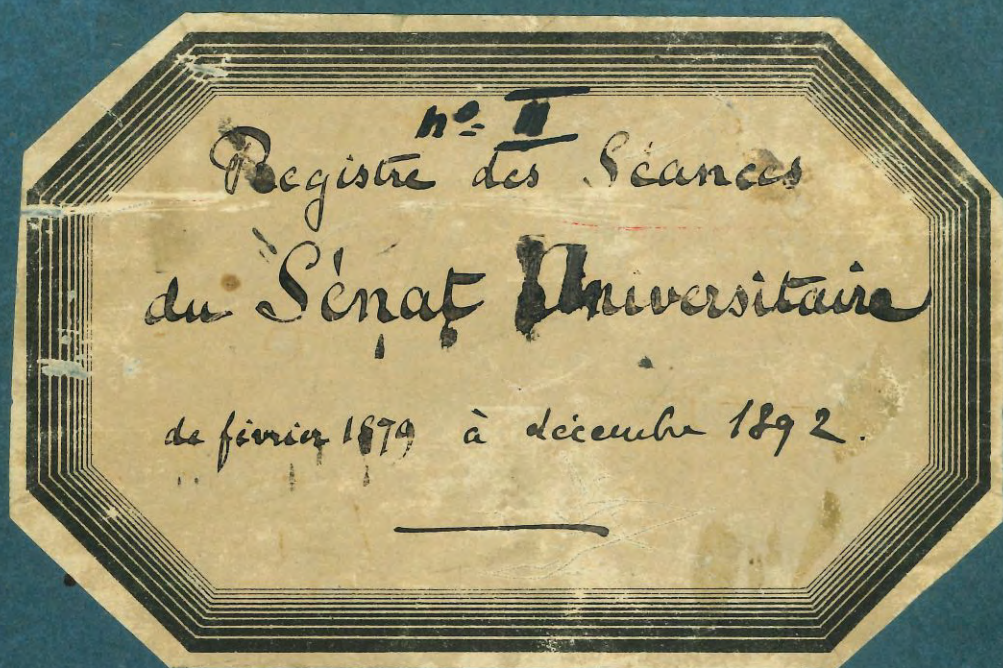 nº II
Registre des Séances
du Sénat Universitaire
de février 1879 à décembre 1892.